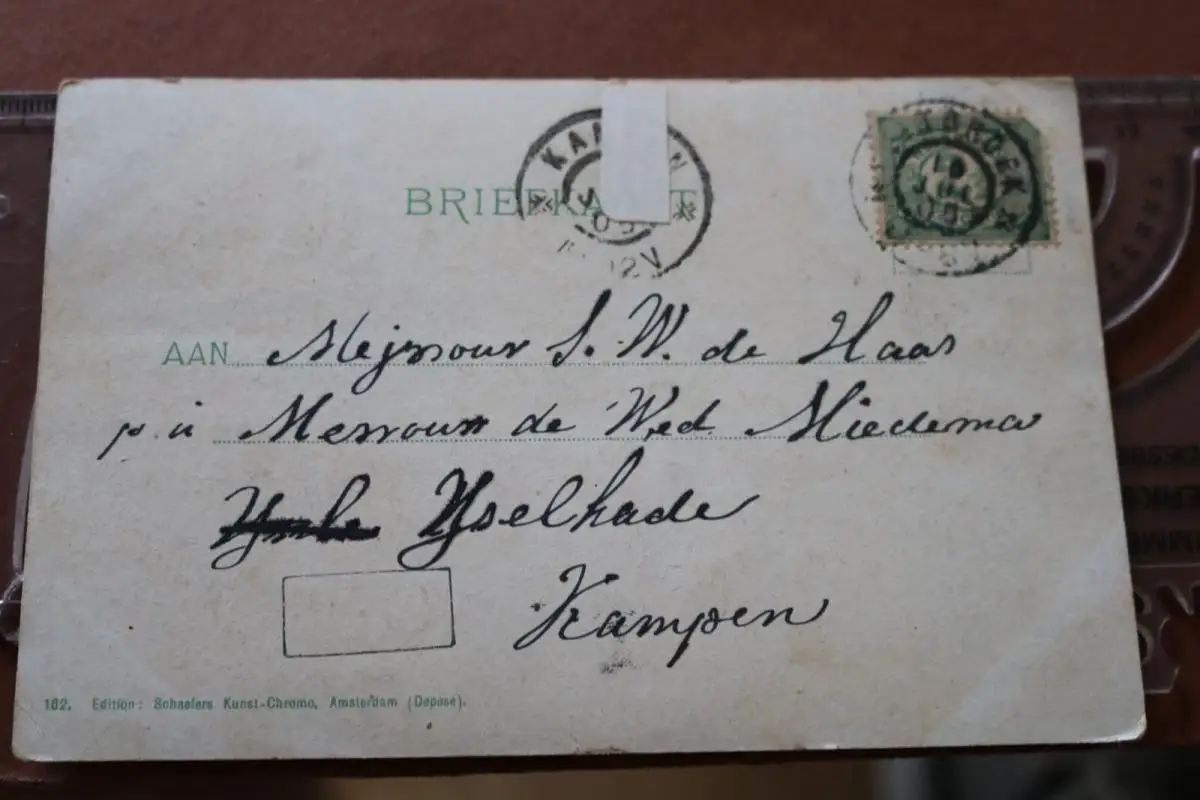 BRIEFKA T
KAM N
05
12V
05
AAN Mejnour S. W. de Haas
p. a Mevrouw de Wed. Miedema
Yselkade
Kampen
182. Edition: Schaefers Kunst-Chromo, Amsterdam (Depose).